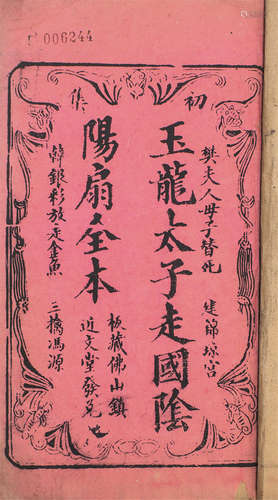 006244
初集
樊夫人母子替死 建節琼宮
玉龍太子走國陰
陽扇全本
板藏佛山鎮
近文堂發兌
韓銀彩放走金魚 三擒馮源